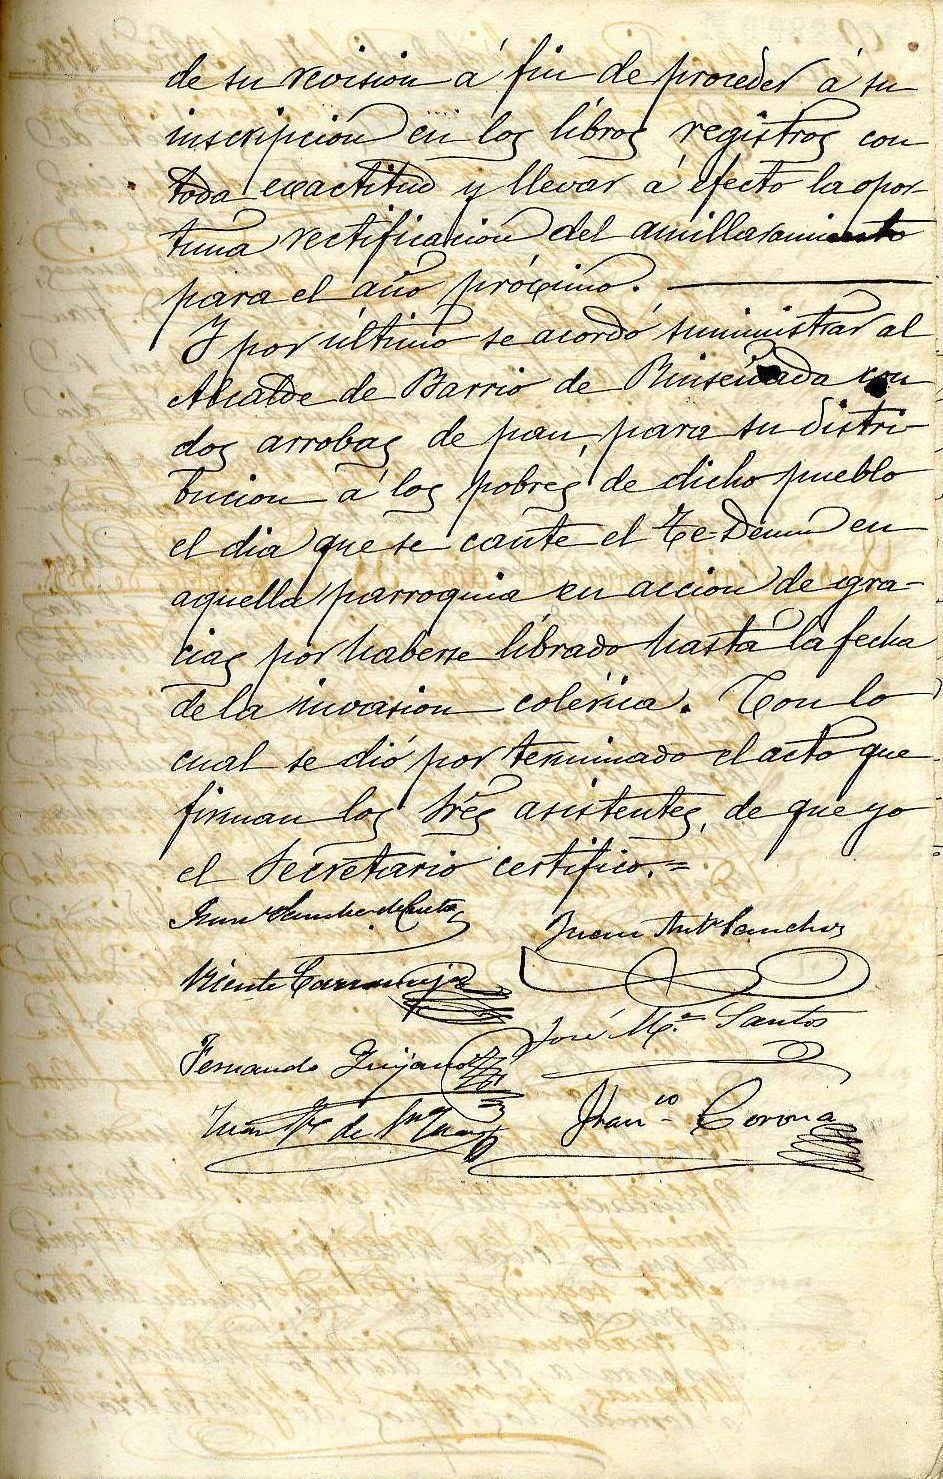 de su revision á fin de proceder á su
inscripcion en los libros registros con
toda exactitud y llevar á efecto la opor-
tuna rectificacion del amillaramiento
para el año próximo.
Y por último se acordó suministrar al
Alcalde de Barrio de Rinseñada con
dos arrobas de pan, para su distri-
bucion á los pobres de dicho pueblo
el dia que se cante el Te-Deum en
aquella parroquia en accion de gra-
cias por haberse librado hasta la fecha
de la invasion colérica. Con lo
cual se dió por terminado el acto que
firman los tres asistentes, de que yo
el Secretario certifico.=
Juan Ant.º Sanchez
Vicente
José M.ª Santos
Fernando Quijano
Juan de
Fran.co Corona